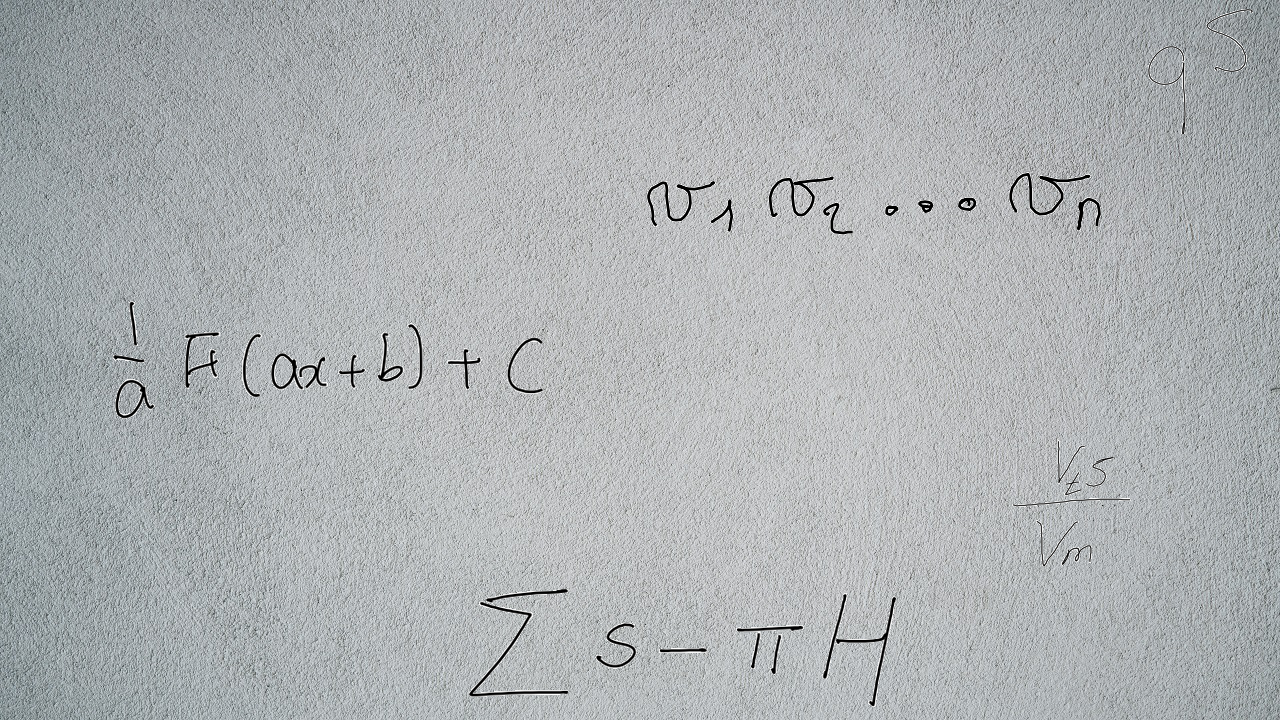 q^S
v_1 v_2 ... v_n
\frac{1}{a} F(ax+b) + C
\frac{V_t s}{V_m}
\sum s - \pi H